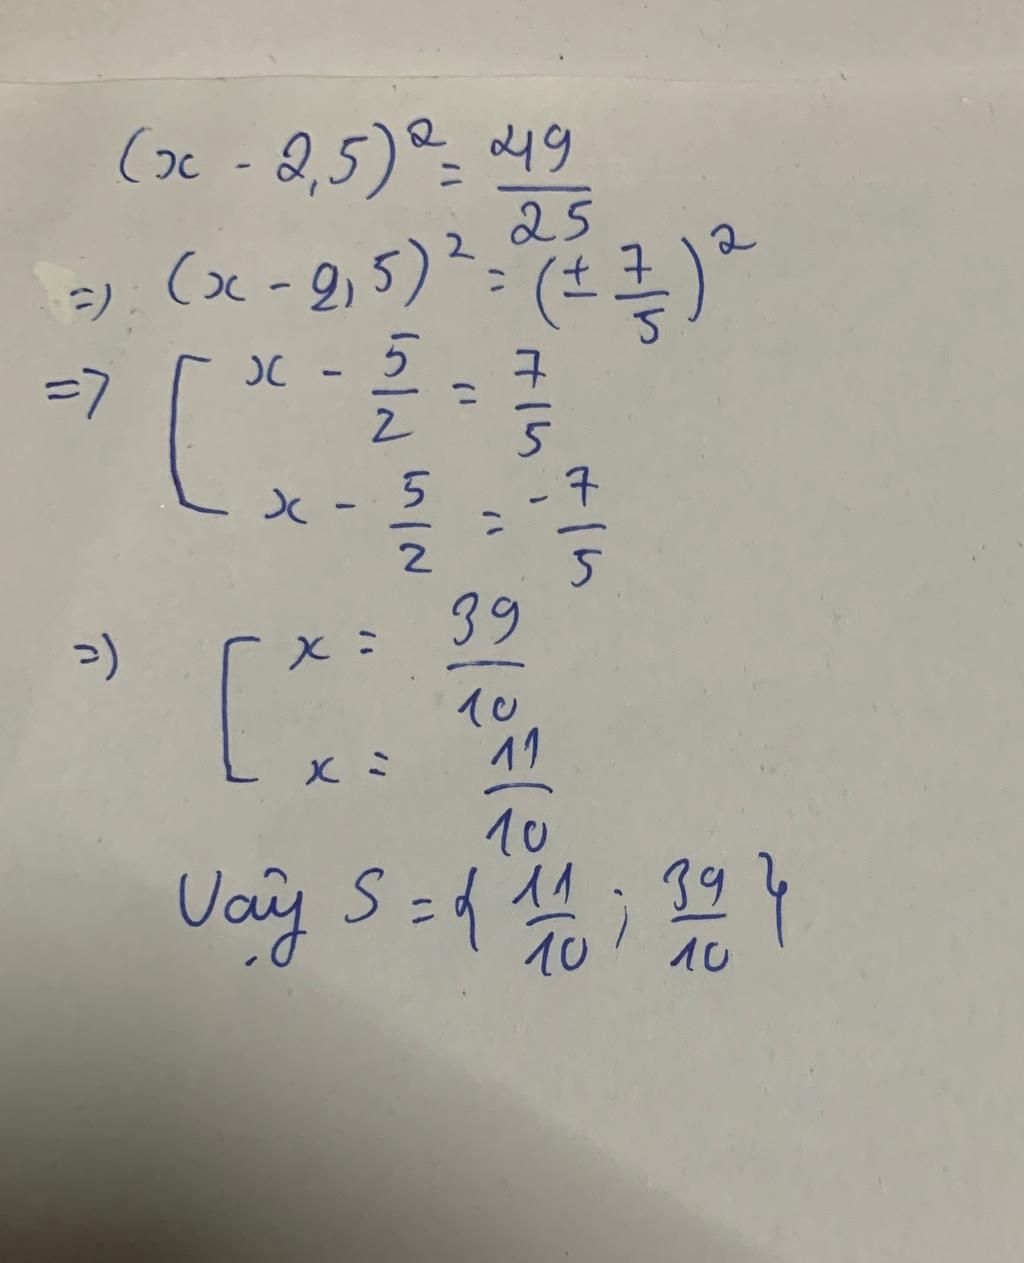 (x - 2,5)² = 49/25
=> (x - 2,5)² = (± 7/5)²
=> [ x - 5/2 = 7/5
x - 5/2 = -7/5
=> [ x = 39/10
x = 11/10
Vậy S = { 11/10 ; 39/10 }